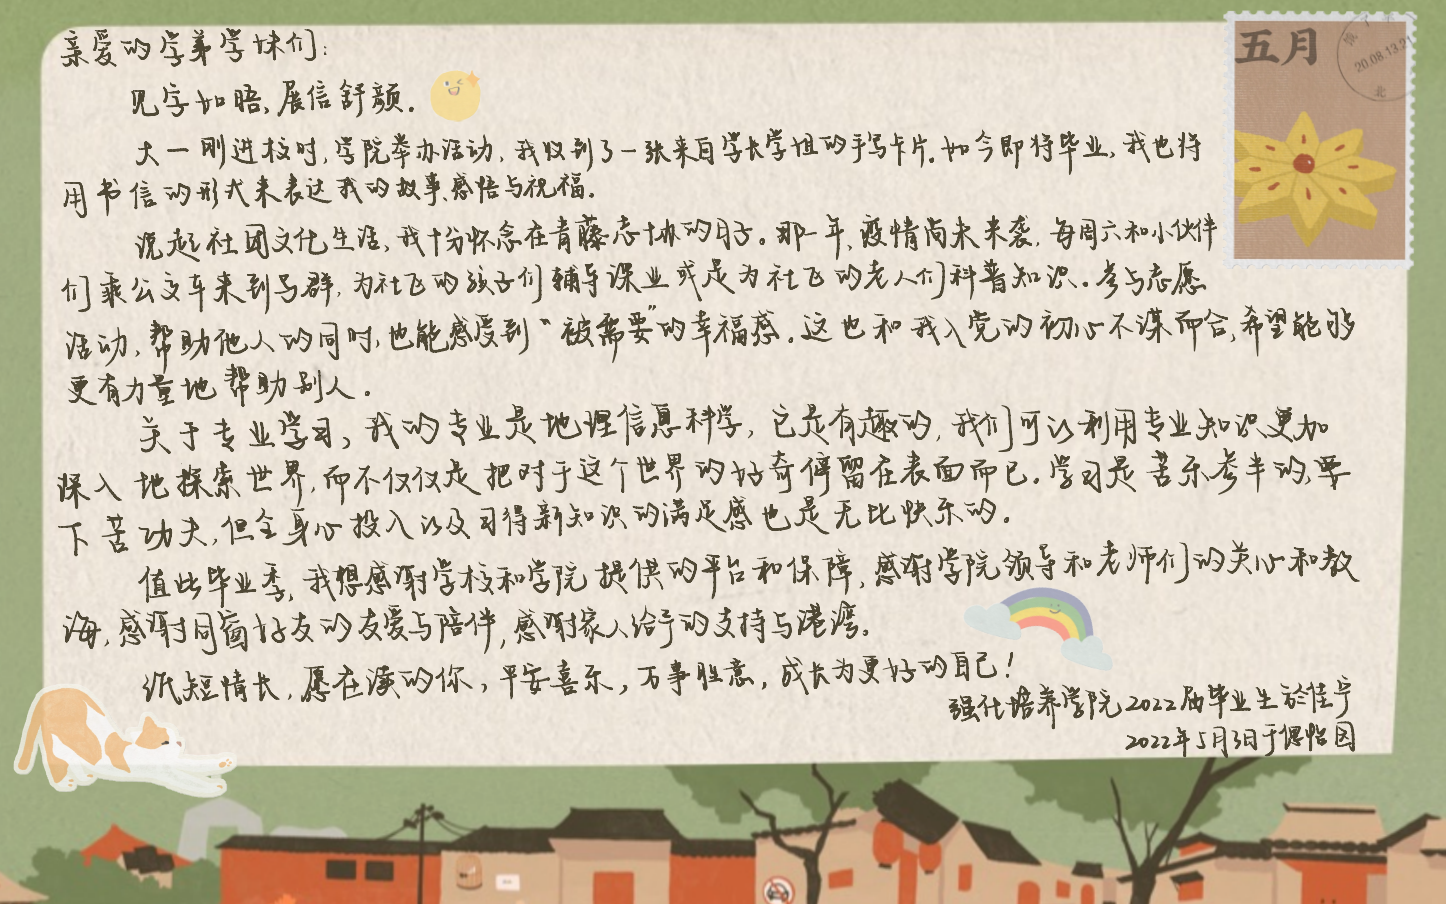 亲爱的学弟学妹们:
见字如晤,展信舒颜.
大一刚进校时,学院举办活动,我收到了一张来自学长学姐的手写卡片.如今即将毕业,我也将
用书信的形式来表达我的故事、感悟与祝福.
说起社团文化生活,我十分怀念在青藤志协的日子。那一年,疫情尚未来袭,每周六和小伙伴
们乘公交车来到马群,为社飞的孩子们辅导课业或是为社飞的老人们科普知识.参与志愿
活动,帮助他人的同时,也能感受到“被需要”的幸福感.这也和我入党的初心不谋而合,希望能够
更有力量地帮助别人.
关于专业学习,我的专业是地理信息科学,它是有趣的,我们可以利用专业知识更加
深入地探索世界,而不仅仅是把对于这个世界的好奇停留在表面而已.学习是苦乐参半的,要
下苦功夫,但全身心投入以及习得新知识的满足感也是无比快乐的.
值此毕业季,我想感谢学校和学院提供的平台和保障,感谢学院领导和老师们的关心和教
诲,感谢同窗好友的友爱与陪伴,感谢家人给予的支持与港湾.
纸短情长,愿在读的你,平安喜乐,万事胜意,成长为更好的自己!
强化培养学院2022届毕业生於佳宁
2022年5月3日于偲怡园
五月
20.08.13.21
北